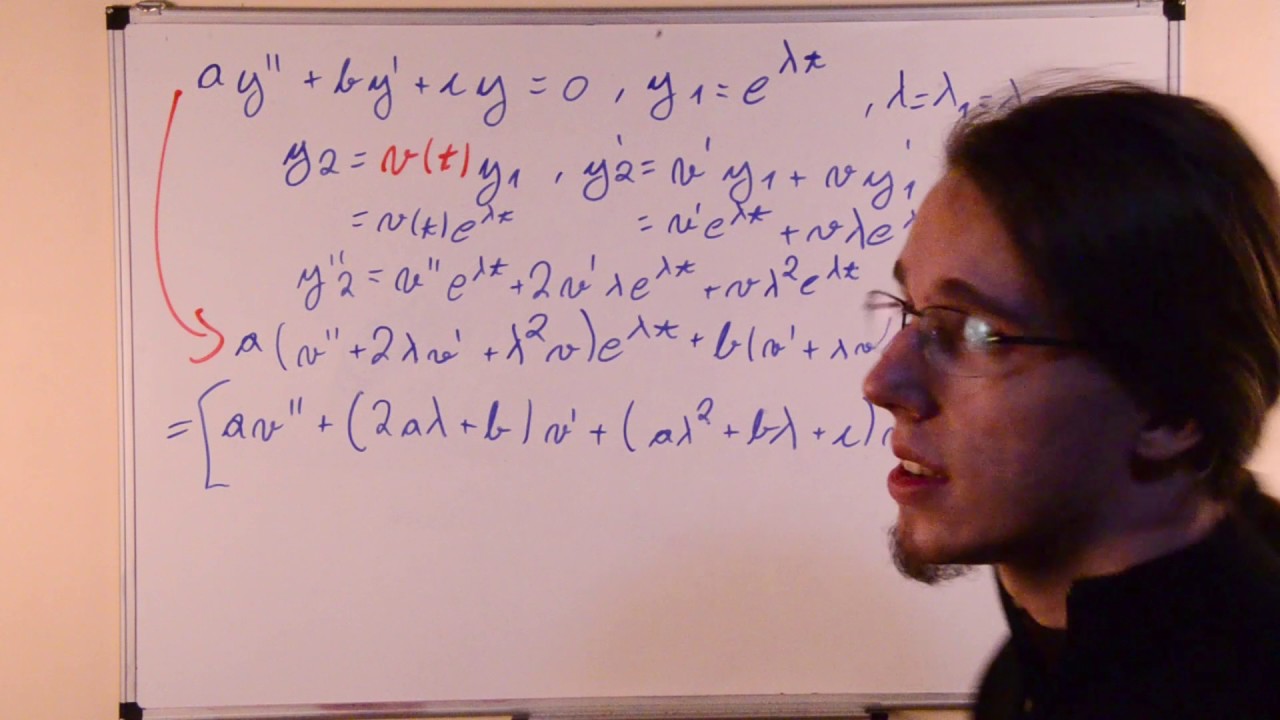 ay'' + by' + cy = 0 , y1 = e^λt , λ = λ1 =
y2 = v(t) y1 , y2' = v' y1 + v y1'
= v(t)e^λt = v'e^λt + vλe
y2'' = v'' e^λt + 2v' λe^λt + vλ²e^λt
a(v'' + 2λv' + λ²v)e^λt + b(v' + λv
= [av'' + (2aλ + b)v' + (aλ² + bλ + c)